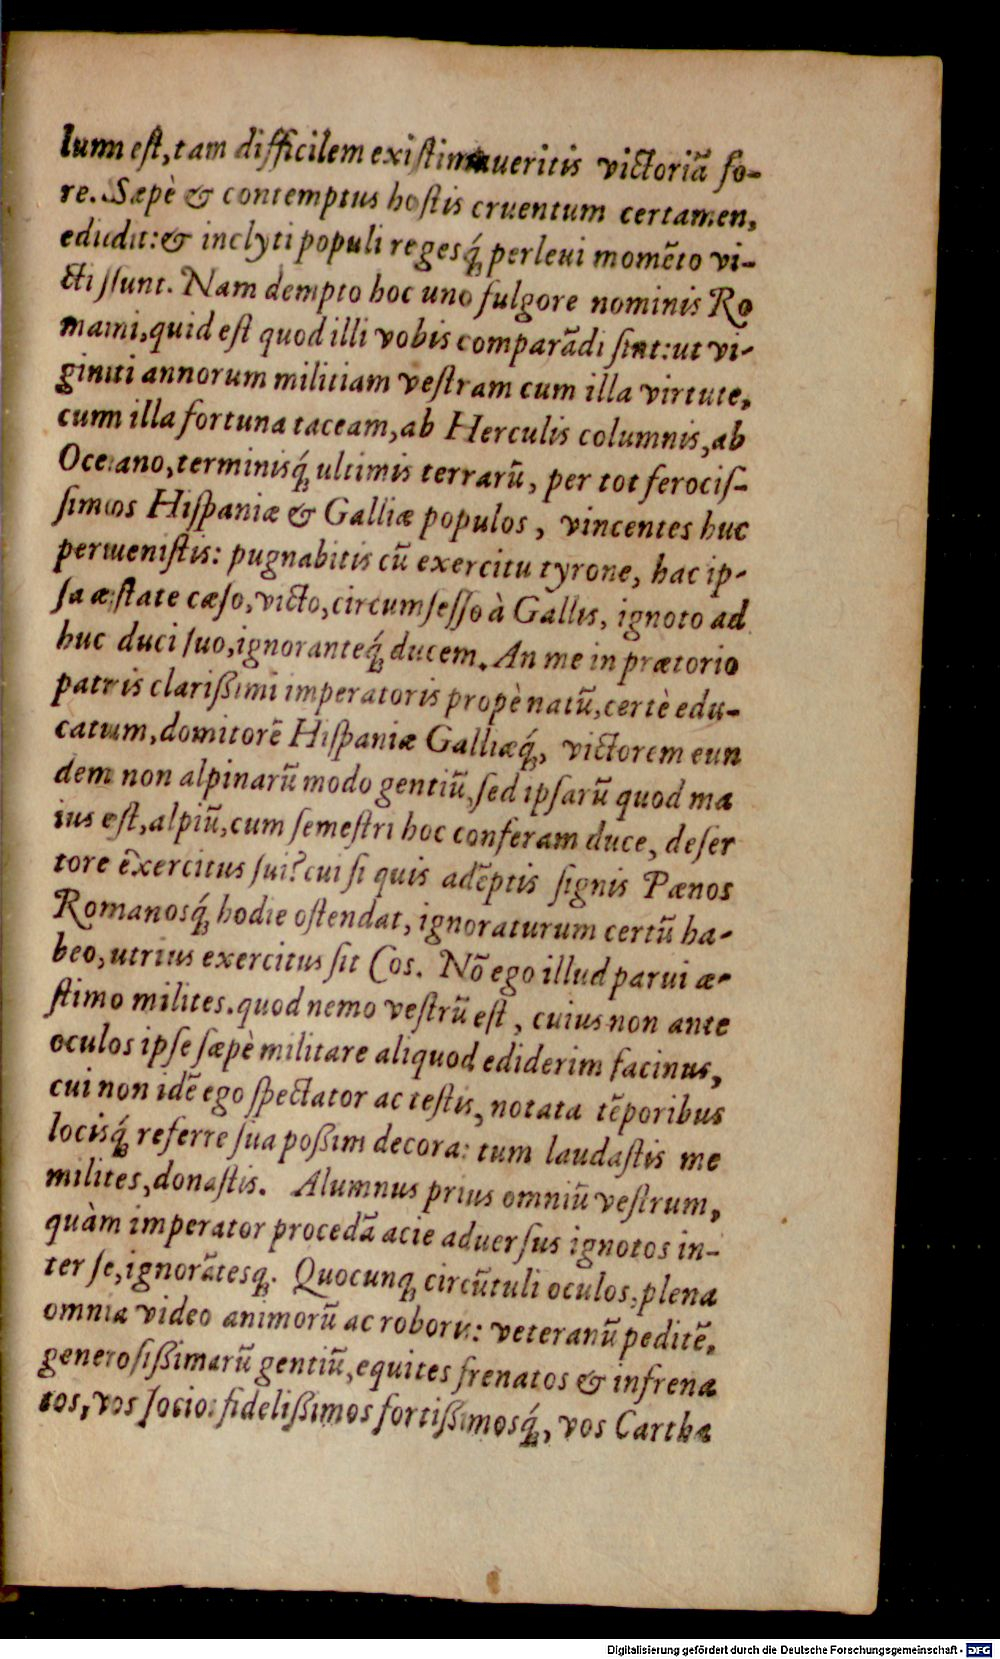 lum est, tam difficilem existimaueritis victoriā fo-
re. Sæpè & contemptus hostis cruentum certamen,
edidit: & inclyti populi regesq́ perleui momēto vi-
cti sunt. Nam dempto hoc uno fulgore nominis Ro
mani, quid est quod illi vobis comparādi sint: ut vi-
ginti annorum militiam vestram cum illa virtute,
cum illa fortuna taceam, ab Herculis columnis, ab
Oceano, terminisq́ ultimis terrarū, per tot ferocis-
simos Hispaniæ & Galliæ populos, vincentes huc
peruenistis: pugnabitis cū exercitu tyrone, hac ip-
sa æstate cæso, victo, circumsesso à Gallis, ignoto ad
huc duci suo, ignoranteq́ ducem. An me in prætorio
patris clarißimi imperatoris propè natū, certè edu-
catum, domitorē Hispaniæ Galliæq́, victorem eun
dem non alpinarū modo gentiū, sed ipsarū quod ma
ius est, alpiū, cum semestri hoc conferam duce, deser
tore exercitus sui? cui si quis adēptis signis Pænos
Romanosq́ hodie ostendat, ignoraturum certū ha-
beo, utrius exercitus sit Cos. Nō ego illud parui æ-
stimo milites. quod nemo vestrū est, cuius non ante
oculos ipse sæpè militare aliquod ediderim facinus,
cui non idē ego spectator ac testis, notata tēporibus
locisq́ referre sua poßim decora: tum laudastis me
milites, donastis. Alumnus prius omniū vestrum,
quàm imperator procedā acie aduersus ignotos in-
ter se, ignorātesq. Quocunq circūtuli oculos, plena
omnia video animorū ac roboris: veteranū peditē,
generosißimarū gentiū, equites frenatos & infrena
tos, vos socios fidelißimos fortißimosq́, vos Cartha
Digitalisierung gefördert durch die Deutsche Forschungsgemeinschaft - DFG